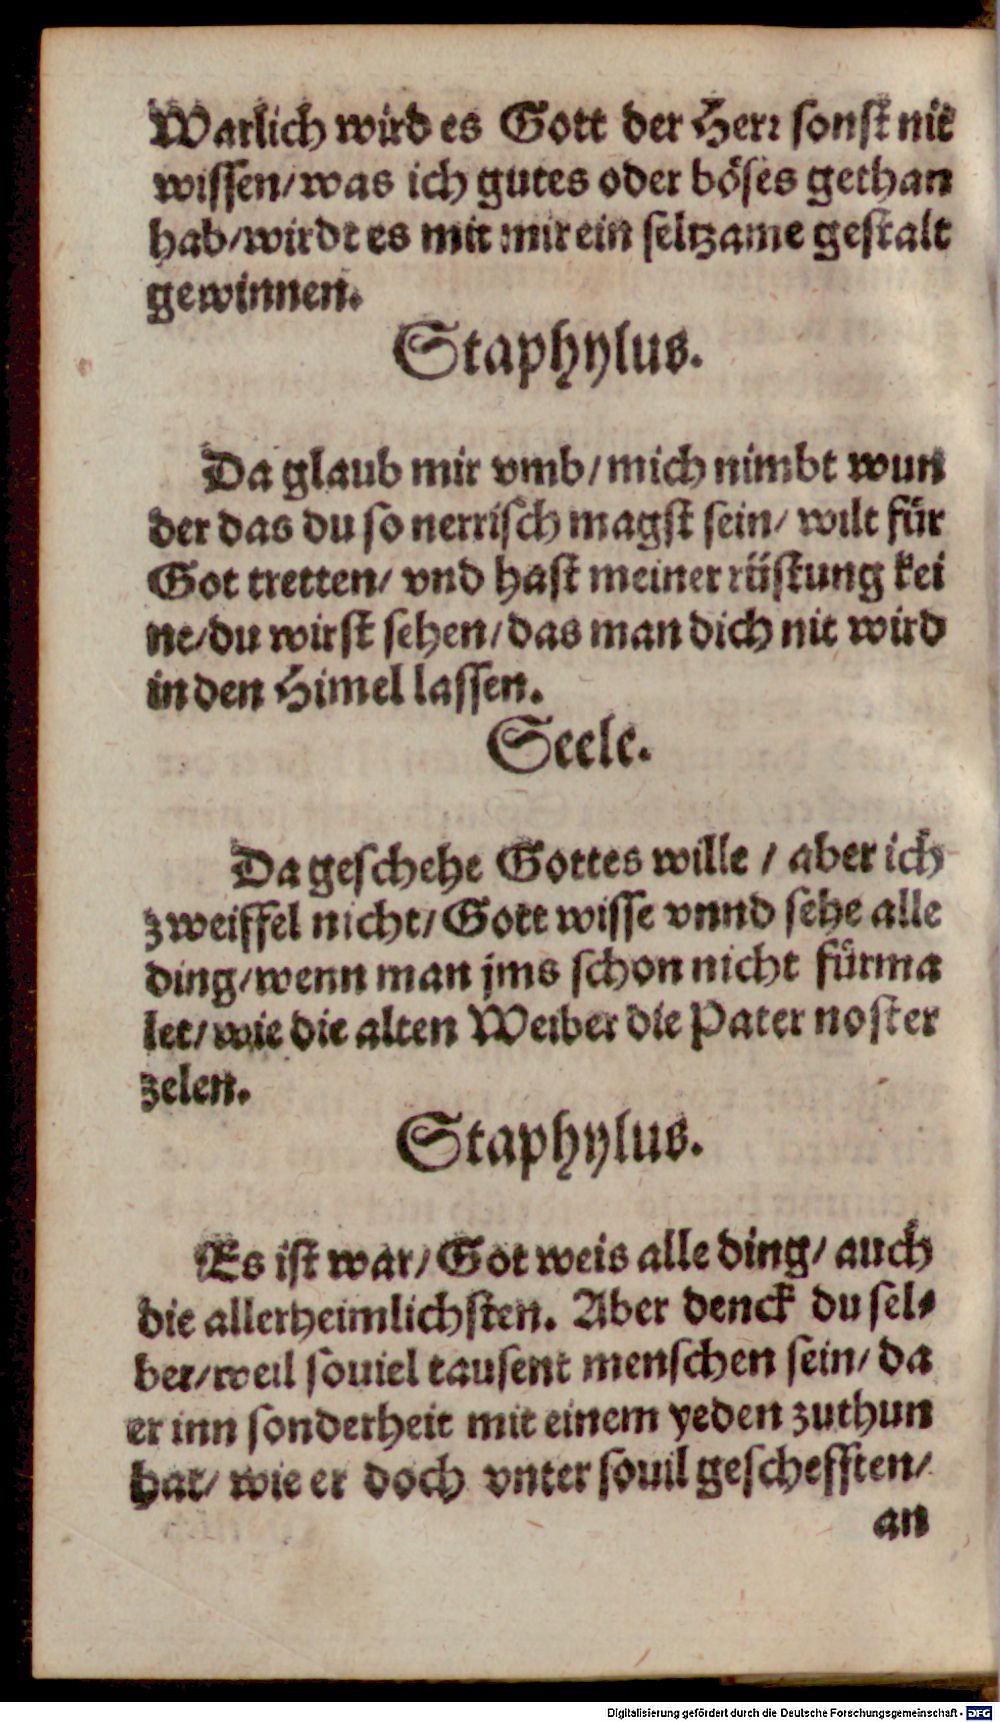 Warlich wird es Gott der Herr sonst nit
wissen/was ich gutes oder böses gethan
hab/wirdt es mit mir ein seltzame gestalt
gewinnen.
Staphylus.
Da glaub mir vmb/mich nimbt wun
der das du so nerrisch magst sein/ wilt für
Got tretten/ vnd hast meiner rüstung kei
ne/du wirst sehen/das man dich nit wird
in den Himel lassen.
Seele.
Da geschehe Gottes wille / aber ich
zweiffel nicht/ Gott wisse vnnd sehe alle
ding/wenn man jms schon nicht fürma
let/wie die alten Weiber die Pater noster
zelen.
Staphylus.
Es ist war/ Got weis alle ding/ auch
die allerheimlichsten. Aber denck du sel-
ber/weil souiel tausent menschen sein/ da
er inn sonderheit mit einem yeden zuthun
hat/ wie er doch vnter souil geschefften/
an
Digitalisierung gefördert durch die Deutsche Forschungsgemeinschaft - DFG